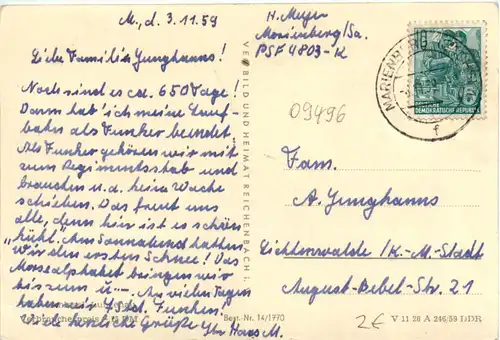 M., d. 3.11.59
H. Meyer
Marienberg/Sa.
PSF 4803-K
Liebe Familie Junghanns!
Noch sind es ca. 650 Tage!
Dann hab' ich meine Lauf-
bahn als Funker beendet.
Als Funker gehören wir mit
zum Regimentsstab und
brauchen u.a. keine Wache
schieben. Das freut uns
alle, denn hier ist es schön
"kühl". Am Sonnabend hatten
wir den ersten Schnee! Das
Morsealphabet bringen wir
bis zum u – . An vielen Tagen
haben wir 7 Std. Funken!
Viele herzliche Grüße Ihr Hans M.
VEB BILD UND HEIMAT REICHENBACH i. V.
Best.-Nr. 14/1970
09496
MARIENBERG
DEUTSCHE
DEMOKRATISCHE REPUBLIK
f
Fam.
A. Junghanns
Lichtenwalde /K.-M.-Stadt
August-Bebel-Str. 21
2€
V 11 28 A 246/59 DDR